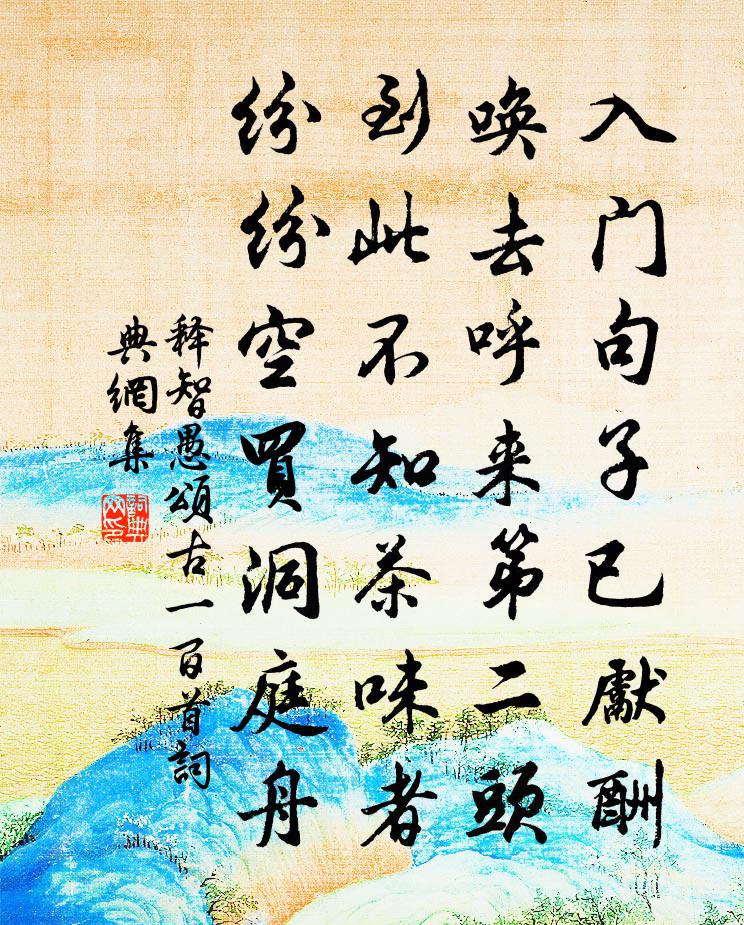 入门句子已獻酬
唤去呼来第二頭
到此不知茶味者
纷纷空買洞庭舟
释智愚頌古一百首詞
典網集